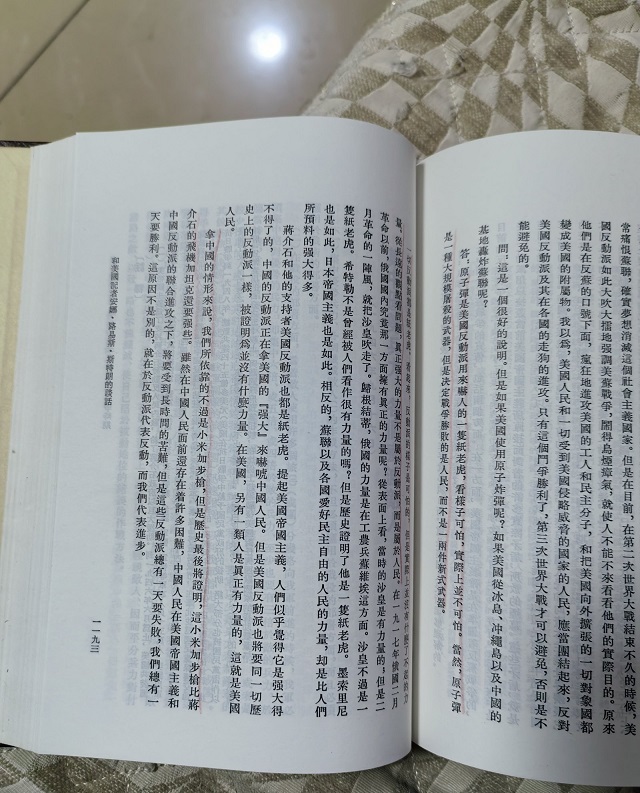 常痛恨蘇聯，確實夢想消滅這個社會主義國家。但是，目前，在第二次世界大戰結束不久的時候，美
國反動派如此大吹大擂地强調美蘇戰爭，鬧得烏煙瘴氣，就使人不能不來看看他們的實際目的。原來
他們是在反蘇的口號下面，瘋狂地進攻美國的工人和民主分子，和把美國向外擴張的一切對象國都
變成美國的附屬物。我以爲，美國人民和一切受到美國侵略威脅的國家的人民，應當團結起來，反對
美國反動派及其在各國的走狗的進攻。只有這個鬥爭勝利了，第三次世界大戰才可以避免，否則是不
能避免的。
問：這是一個很好的說明。但是如果美國使用原子炸彈呢？如果美國從冰島、冲繩島以及中國的
基地轟炸蘇聯呢？
答：原子彈是美國反動派用來嚇人的一隻紙老虎，看樣子可怕，實際上並不可怕。當然，原子彈
是一種大規模屠殺的武器，但是决定戰爭勝敗的是人民，而不是一兩件新式武器。
一切反動派都是紙老虎。看起來，反動派的樣子是可怕的，但是實際上並沒有什麽了不起的力
量。從長遠的觀點看問題，眞正强大的力量不是屬於反動派，而是屬於人民。在一九一七年俄國二月
革命以前，俄國國內究竟那一方面擁有眞正的力量呢？從表面上看，當時的沙皇是有力量的；但是二
月革命的一陣風，就把沙皇吹走了。歸根結蒂，俄國的力量是在工農兵蘇維埃這方面。沙皇不過是一
隻紙老虎。希特勒不是曾經被人們看作很有力量的嗎？但是歷史證明了他是一隻紙老虎。墨索里尼
也是如此，日本帝國主義也是如此。相反的，蘇聯以及各國愛好民主自由的人民的力量，却是比人們
所預料的强大得多。
蔣介石和他的支持者美國反動派也都是紙老虎。提起美國帝國主義，人們似乎覺得它是强大得
不得了的，中國的反動派正在拿美國的『强大』來嚇唬中國人民。但是美國反動派也將要同一切歷
史上的反動派一樣，被證明爲並沒有什麽力量。在美國，另有一類人是眞正有力量的，這就是美國
人民。
拿中國的情形來說，我們所依靠的不過是小米加步槍，但是歷史最後將證明，這小米加步槍比蔣
介石的飛機加坦克還要强些。雖然在中國人民面前還存在着許多困難，中國人民在美國帝國主義和
中國反動派的聯合進攻之下，將要受到長時間的苦難，但是這些反動派總有一天要失敗，我們總有一
天要勝利。這原因不是別的，就在於反動派代表反動，而我們代表進步。
和美國記者安娜・路易斯・斯特朗的談話
一一九三